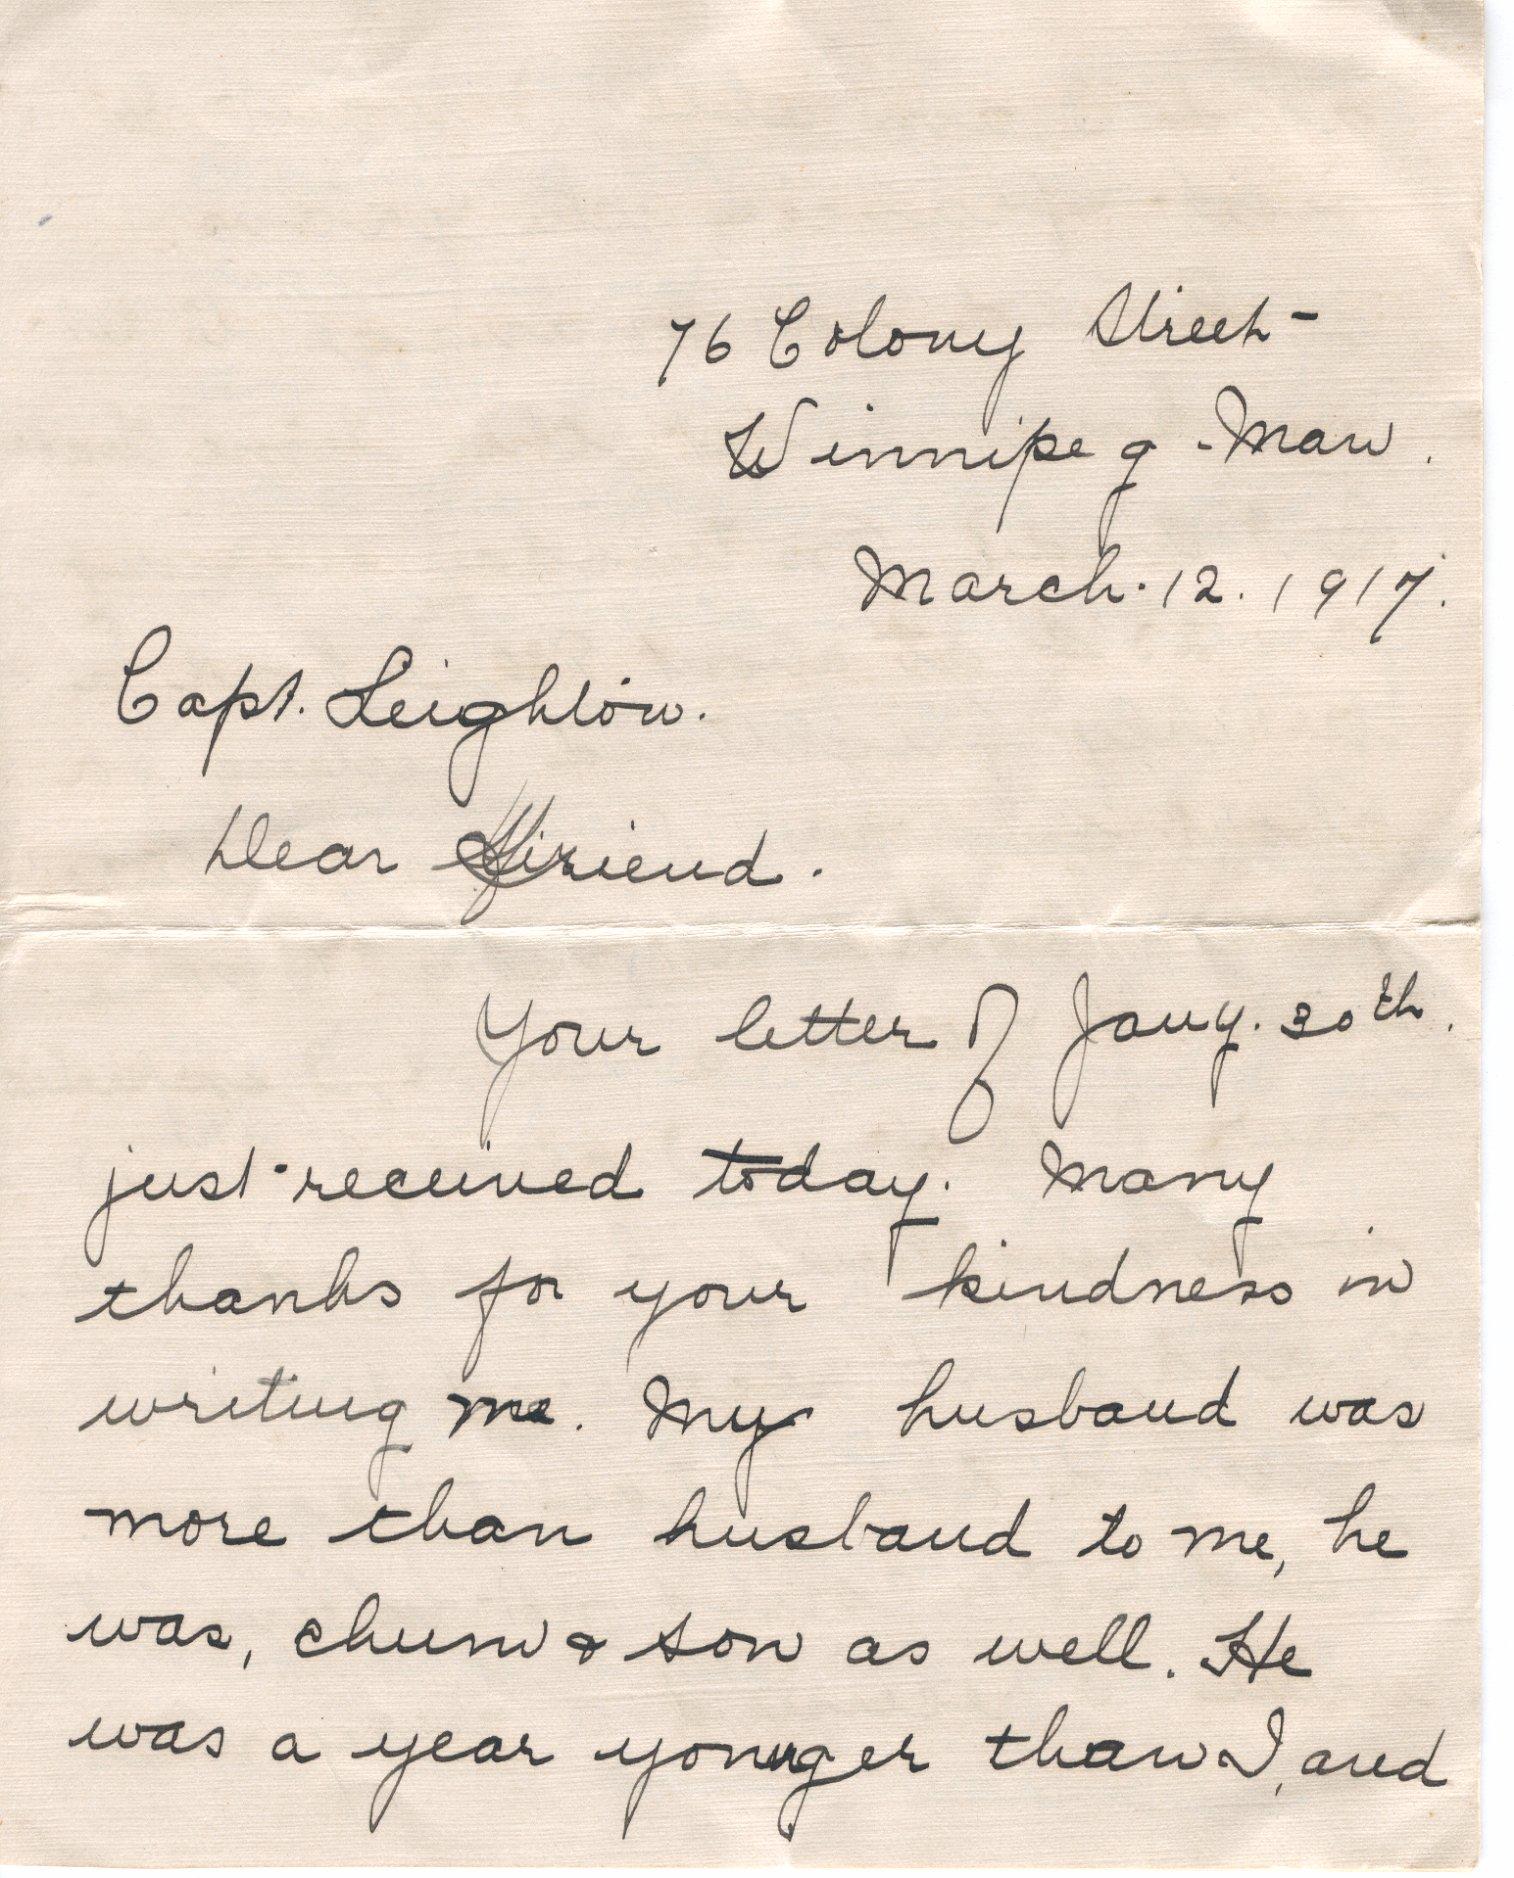 76 Colony Street
Winnipeg - Man.
March. 12. 1917.
Capt. Leighton.
Dear Friend.
Your letter of Jany. 30th.
just received today. Many
thanks for your kindness in
writing me. My husband was
more than husband to me, he
was, chum & son as well. He
was a year younger than I, and